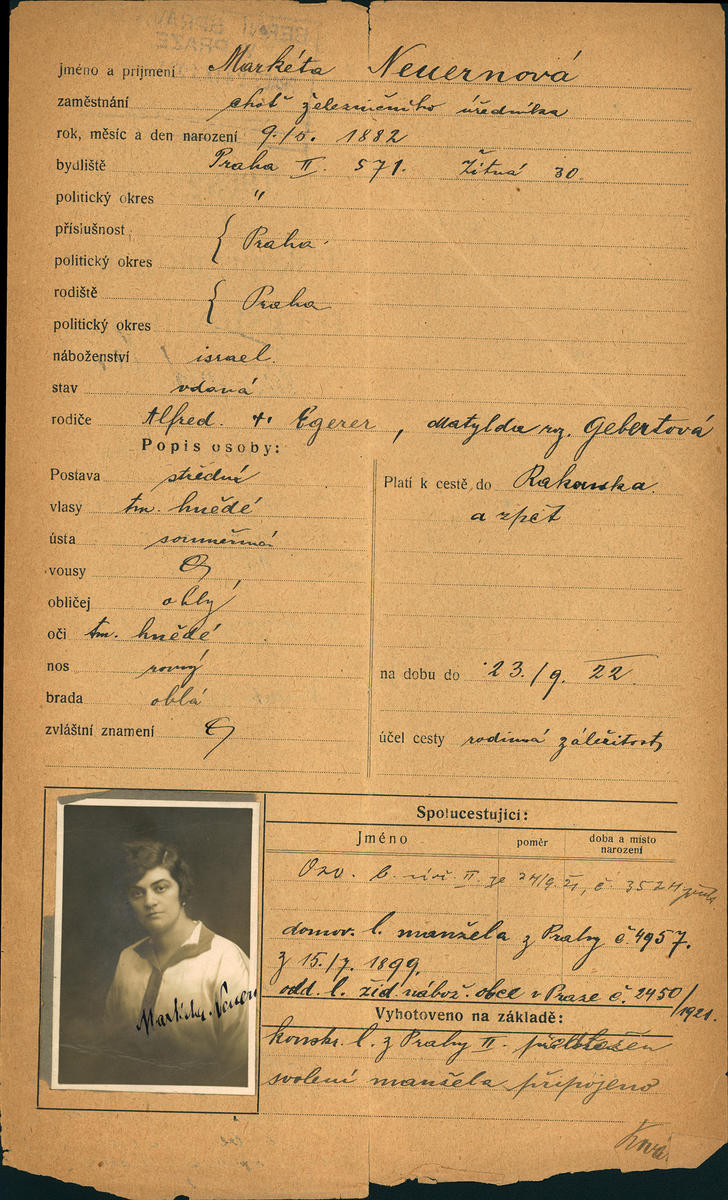 jméno a príjmení Markéta Neuernová
zaměstnání choť železničního úředníka
rok, měsíc a den narození 9./5. 1882
bydliště Praha II. 571. Žitná 30
politický okres "
příslušnost { Praha.
politický okres
rodiště { Praha
politický okres
náboženství israel.
stav vdaná
rodiče Alfred Egerer, Matylda roz. Gebertová
Popis osoby:
Postava střední
vlasy tm. hnědé
ústa souměrná
vousy
obličej oblý
oči tm. hnědé
nos rovný
brada oblá
zvláštní znamení
Platí k cestě do Rakouska.
a zpět
na dobu do 23./9. 22.
účel cesty rodinná záležitost
Spolucestující:
Jméno poměr doba a místo narození
II. 24/9. 21, č. 3524
domov. l. manžela z Prahy č. 4957.
z 15./7. 1899.
odd. l. žid. nábož. obce v Praze č. 2450/1921.
Vyhotoveno na základě:
konskr. l. z Prahy II.
svolení manžela připojeno
Markéta Neuern